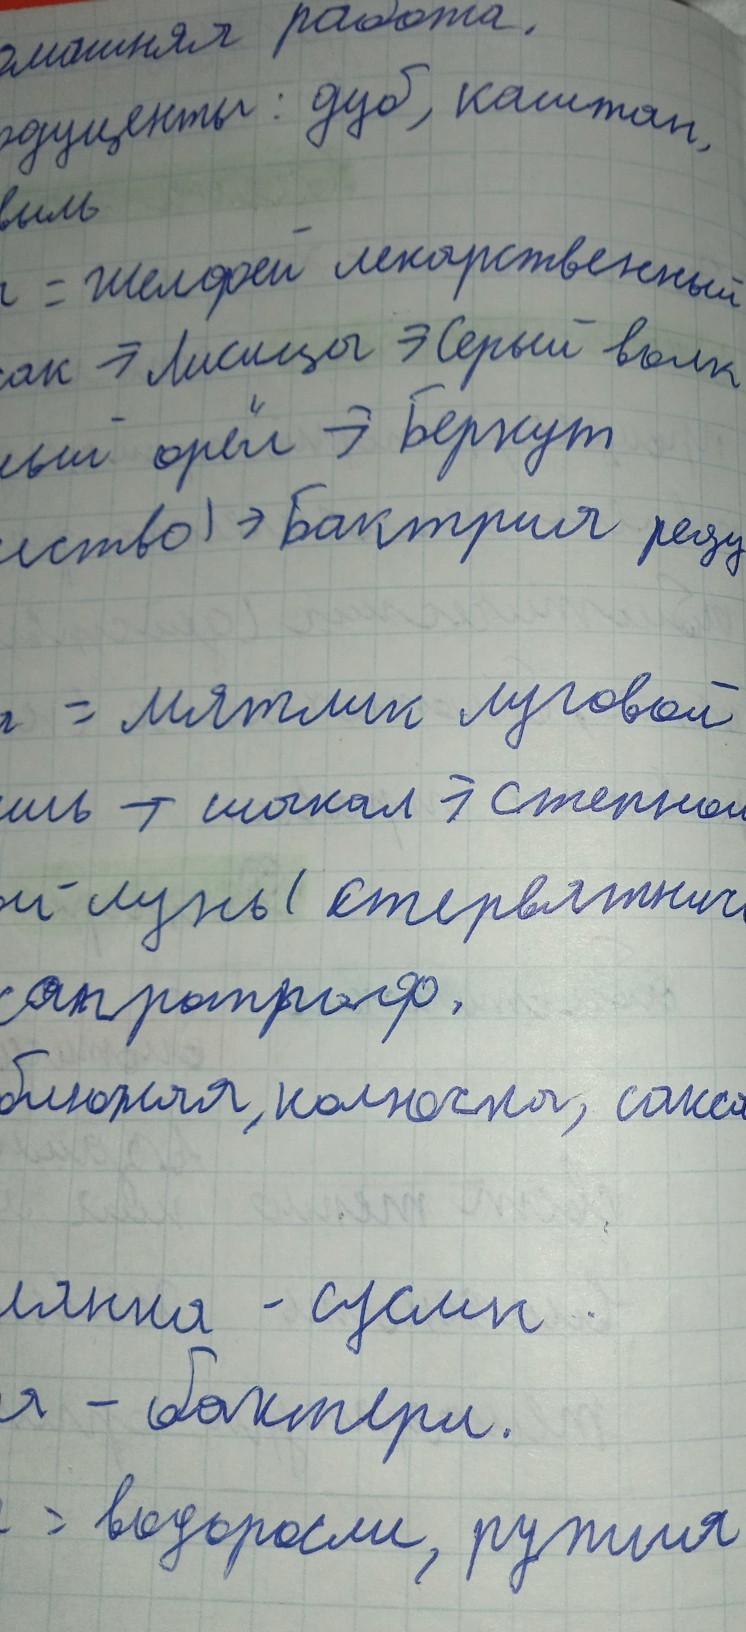 омашняя работа.
одуценты: дуб, каштан,
выль
= Шелфей лекарственный
сак → Лисицы → Серый волк
ный орёл → Беркут
чество) → Бактрия реду
= мятлик луговой
шь → шакал → степной
ой лунь (стервятнич
сапротроф.
блюжая, колючка, сакса
лянка - суслик
я - бактери.
= водоросли, руппия